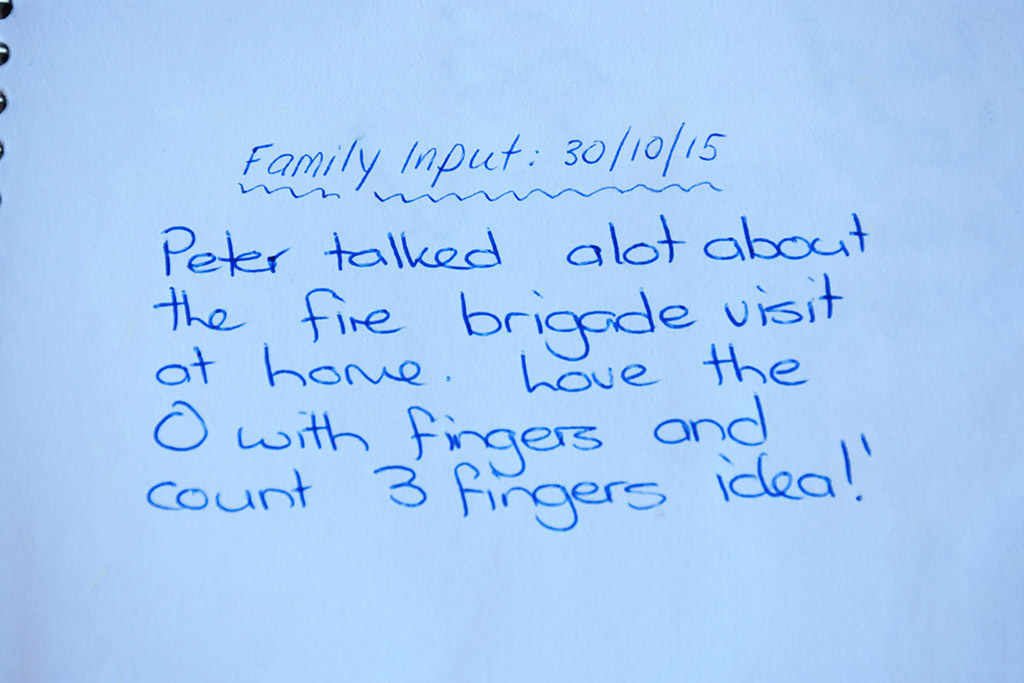 Family Input: 30/10/15
Peter talked alot about
the fire brigade visit
at home. Love the
O with fingers and
count 3 fingers idea!'